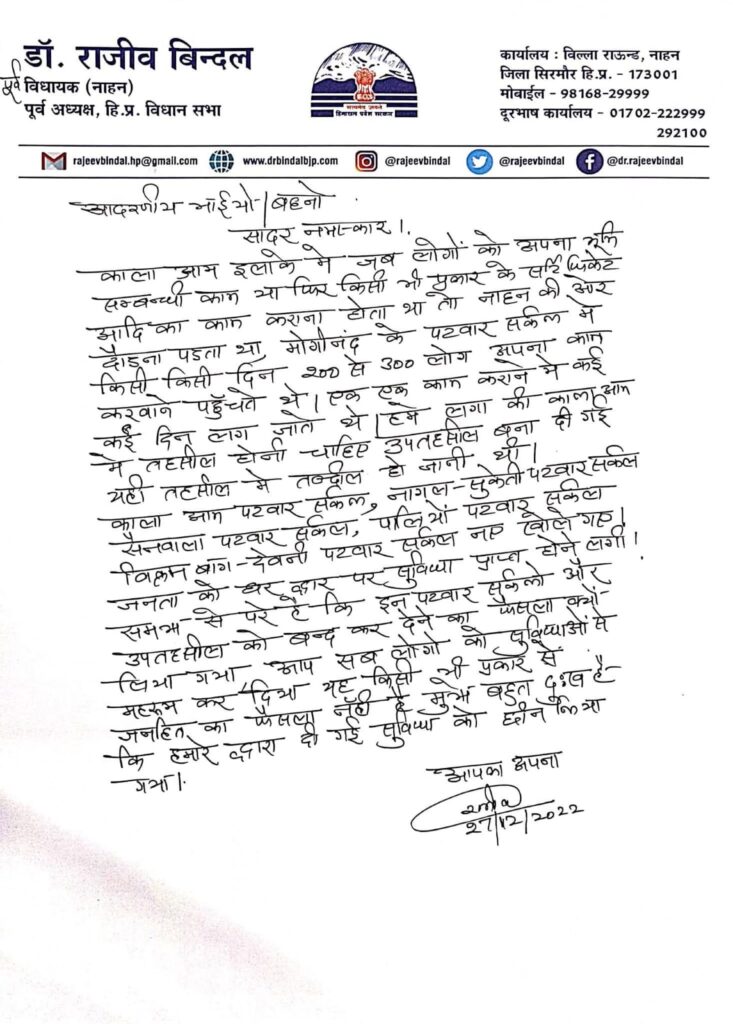 डॉ. राजीव बिन्दल
पूर्व विधायक (नाहन)
पूर्व अध्यक्ष, हि.प्र. विधान सभा
सत्यमेव जयते
हिमाचल प्रदेश सरकार
कार्यालय : विल्ला राऊन्ड, नाहन
जिला सिरमौर हि.प्र. - 173001
मोबाईल - 98168-29999
दूरभाष कार्यालय - 01702-222999
292100
rajeevbindal.hp@gmail.com www.drbindalbjp.com @rajeevbindal @rajeevbindal @dr.rajeevbindal
आदरणीय भाईयो/बहनो
सादर नमस्कार।
काला आम इलाके मे जब लोगों को अपना भूमि
सम्बन्धी काम या फिर किसी भी प्रकार के सर्टिफिकेट
आदि का काम कराना होता था तो नाहन की ओर
दौडना पडता था, मोगीनंद के पटवार सर्कल मे
किसी किसी दिन 200 से 300 लोग अपना काम
करवाने पहुँचते थे। एक एक काम कराने मे कई
कई दिन लग जाते थे। हमे लगा की काला आम
मे तहसील होनी चाहिए उपतहसील बना दी गई
यही तहसील मे तब्दील हो जानी थी।
काला आम पटवार सर्कल, नागल-सुकेती पटवार सर्कल
सैनवाला पटवार सर्कल, पालियों पटवार सर्कल
विक्रम बाग-देवनी पटवार सर्कल नए खोले गए।
जनता को घर द्वार पर सुविधा प्राप्त होने लगी।
समझ से परे है कि इन पटवार सर्कलो और
उपतहसील को बन्द कर देने का फैसला क्यों-
लिया गया, आप सब लोगो को सुविधाओं से
महरूम कर दिया यह किसी भी प्रकार से
जनहित का फैसला नहीं है मुझे बहुत दुःख है-
कि हमारे द्वारा दी गई सुविधा को छीन लिया
गया।
आपका अपना
27/12/2022